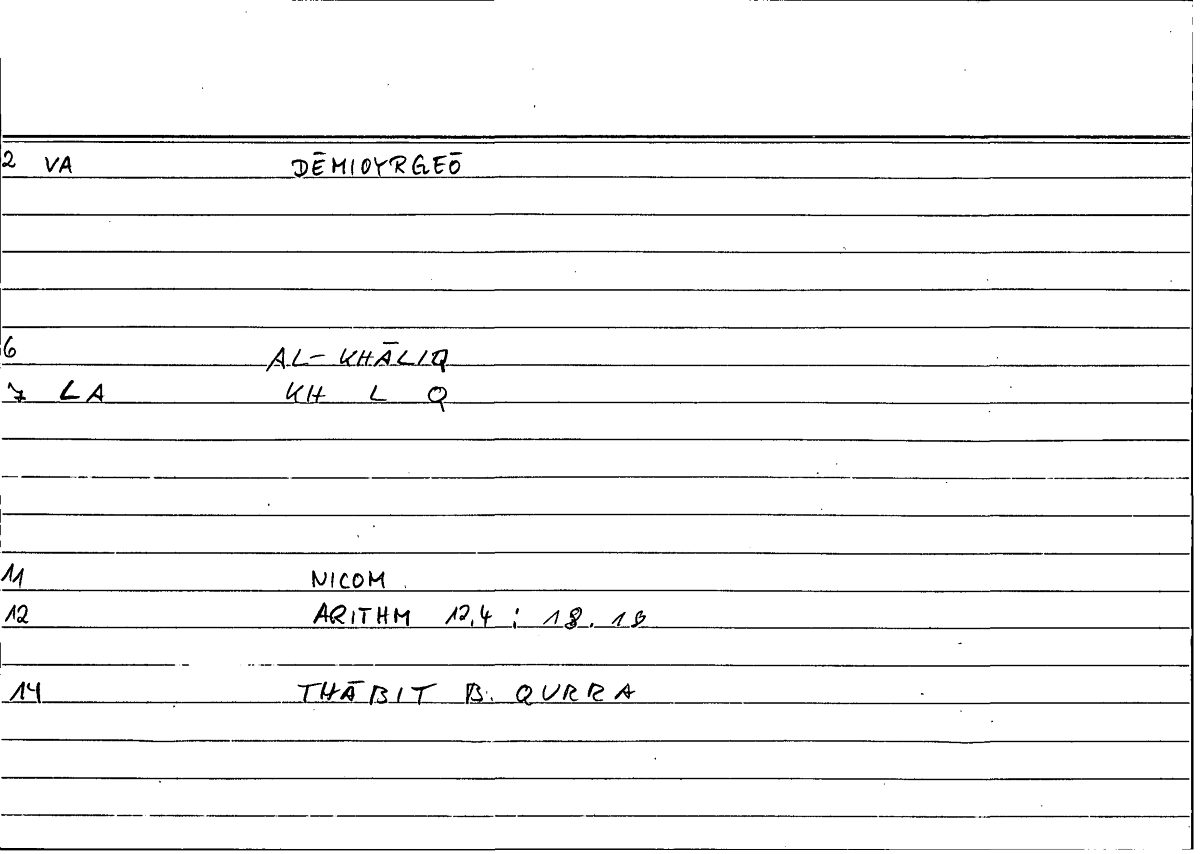 2 VA DĒMIOYRGEŌ
6 AL-KHĀLIQ
7 LA KH L Q
11 NICOM.
12 ARITHM 12,4 ; 18.18
14 THĀBIT B. QURRA